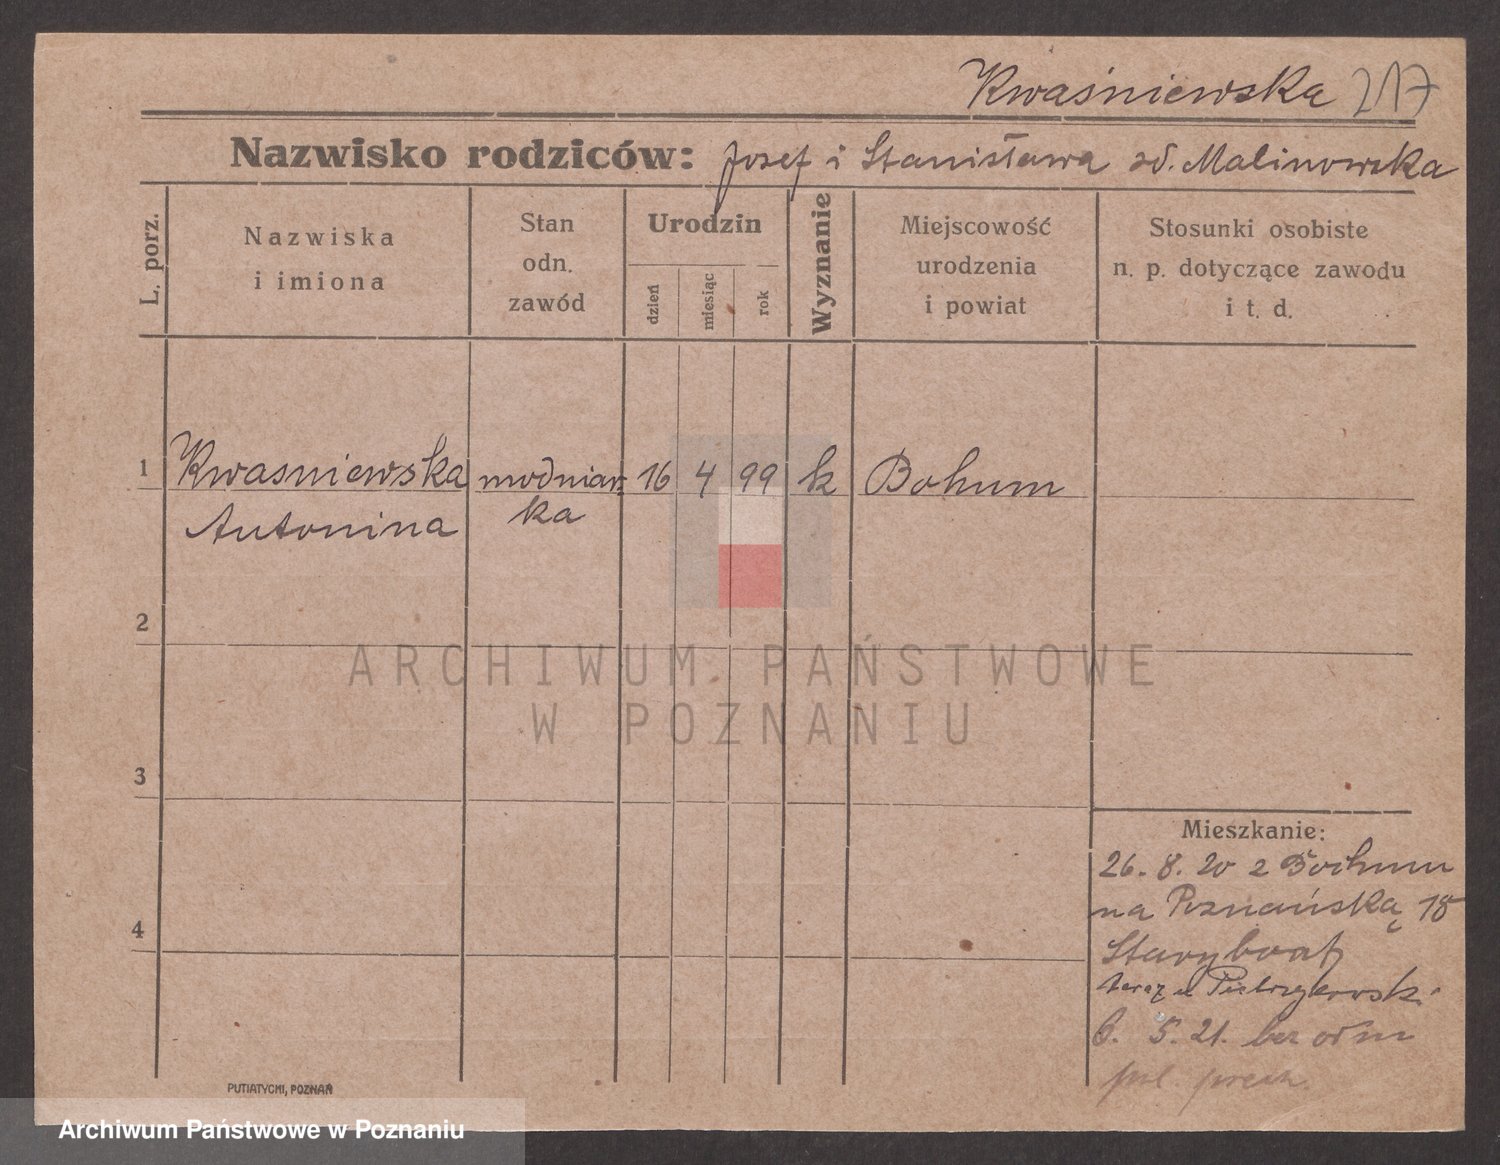 Kwaśniewska 217
Nazwisko rodziców: Josef i Stanisława zd. Malinowska
L. porz.
Nazwiska
i imiona
Stan
odn.
zawód
Urodzin
dzień
miesiąc
rok
Wyznanie
Miejscowość
urodzenia
i powiat
Stosunki osobiste
n. p. dotyczące zawodu
i t. d.
1 Kwasniewska modniar- 16 4 99 k Bohum
Antonina ka
2
ARCHIWUM PAŃSTWOWE
W POZNANIU
3
4
Mieszkanie:
26. 8. 20 z Bochum
na Poznańską 18
teraz u Pietrzykowski
6. 5. 21. bez odm
PUTIATYCKI, POZNAŃ
Archiwum Państwowe w Poznaniu